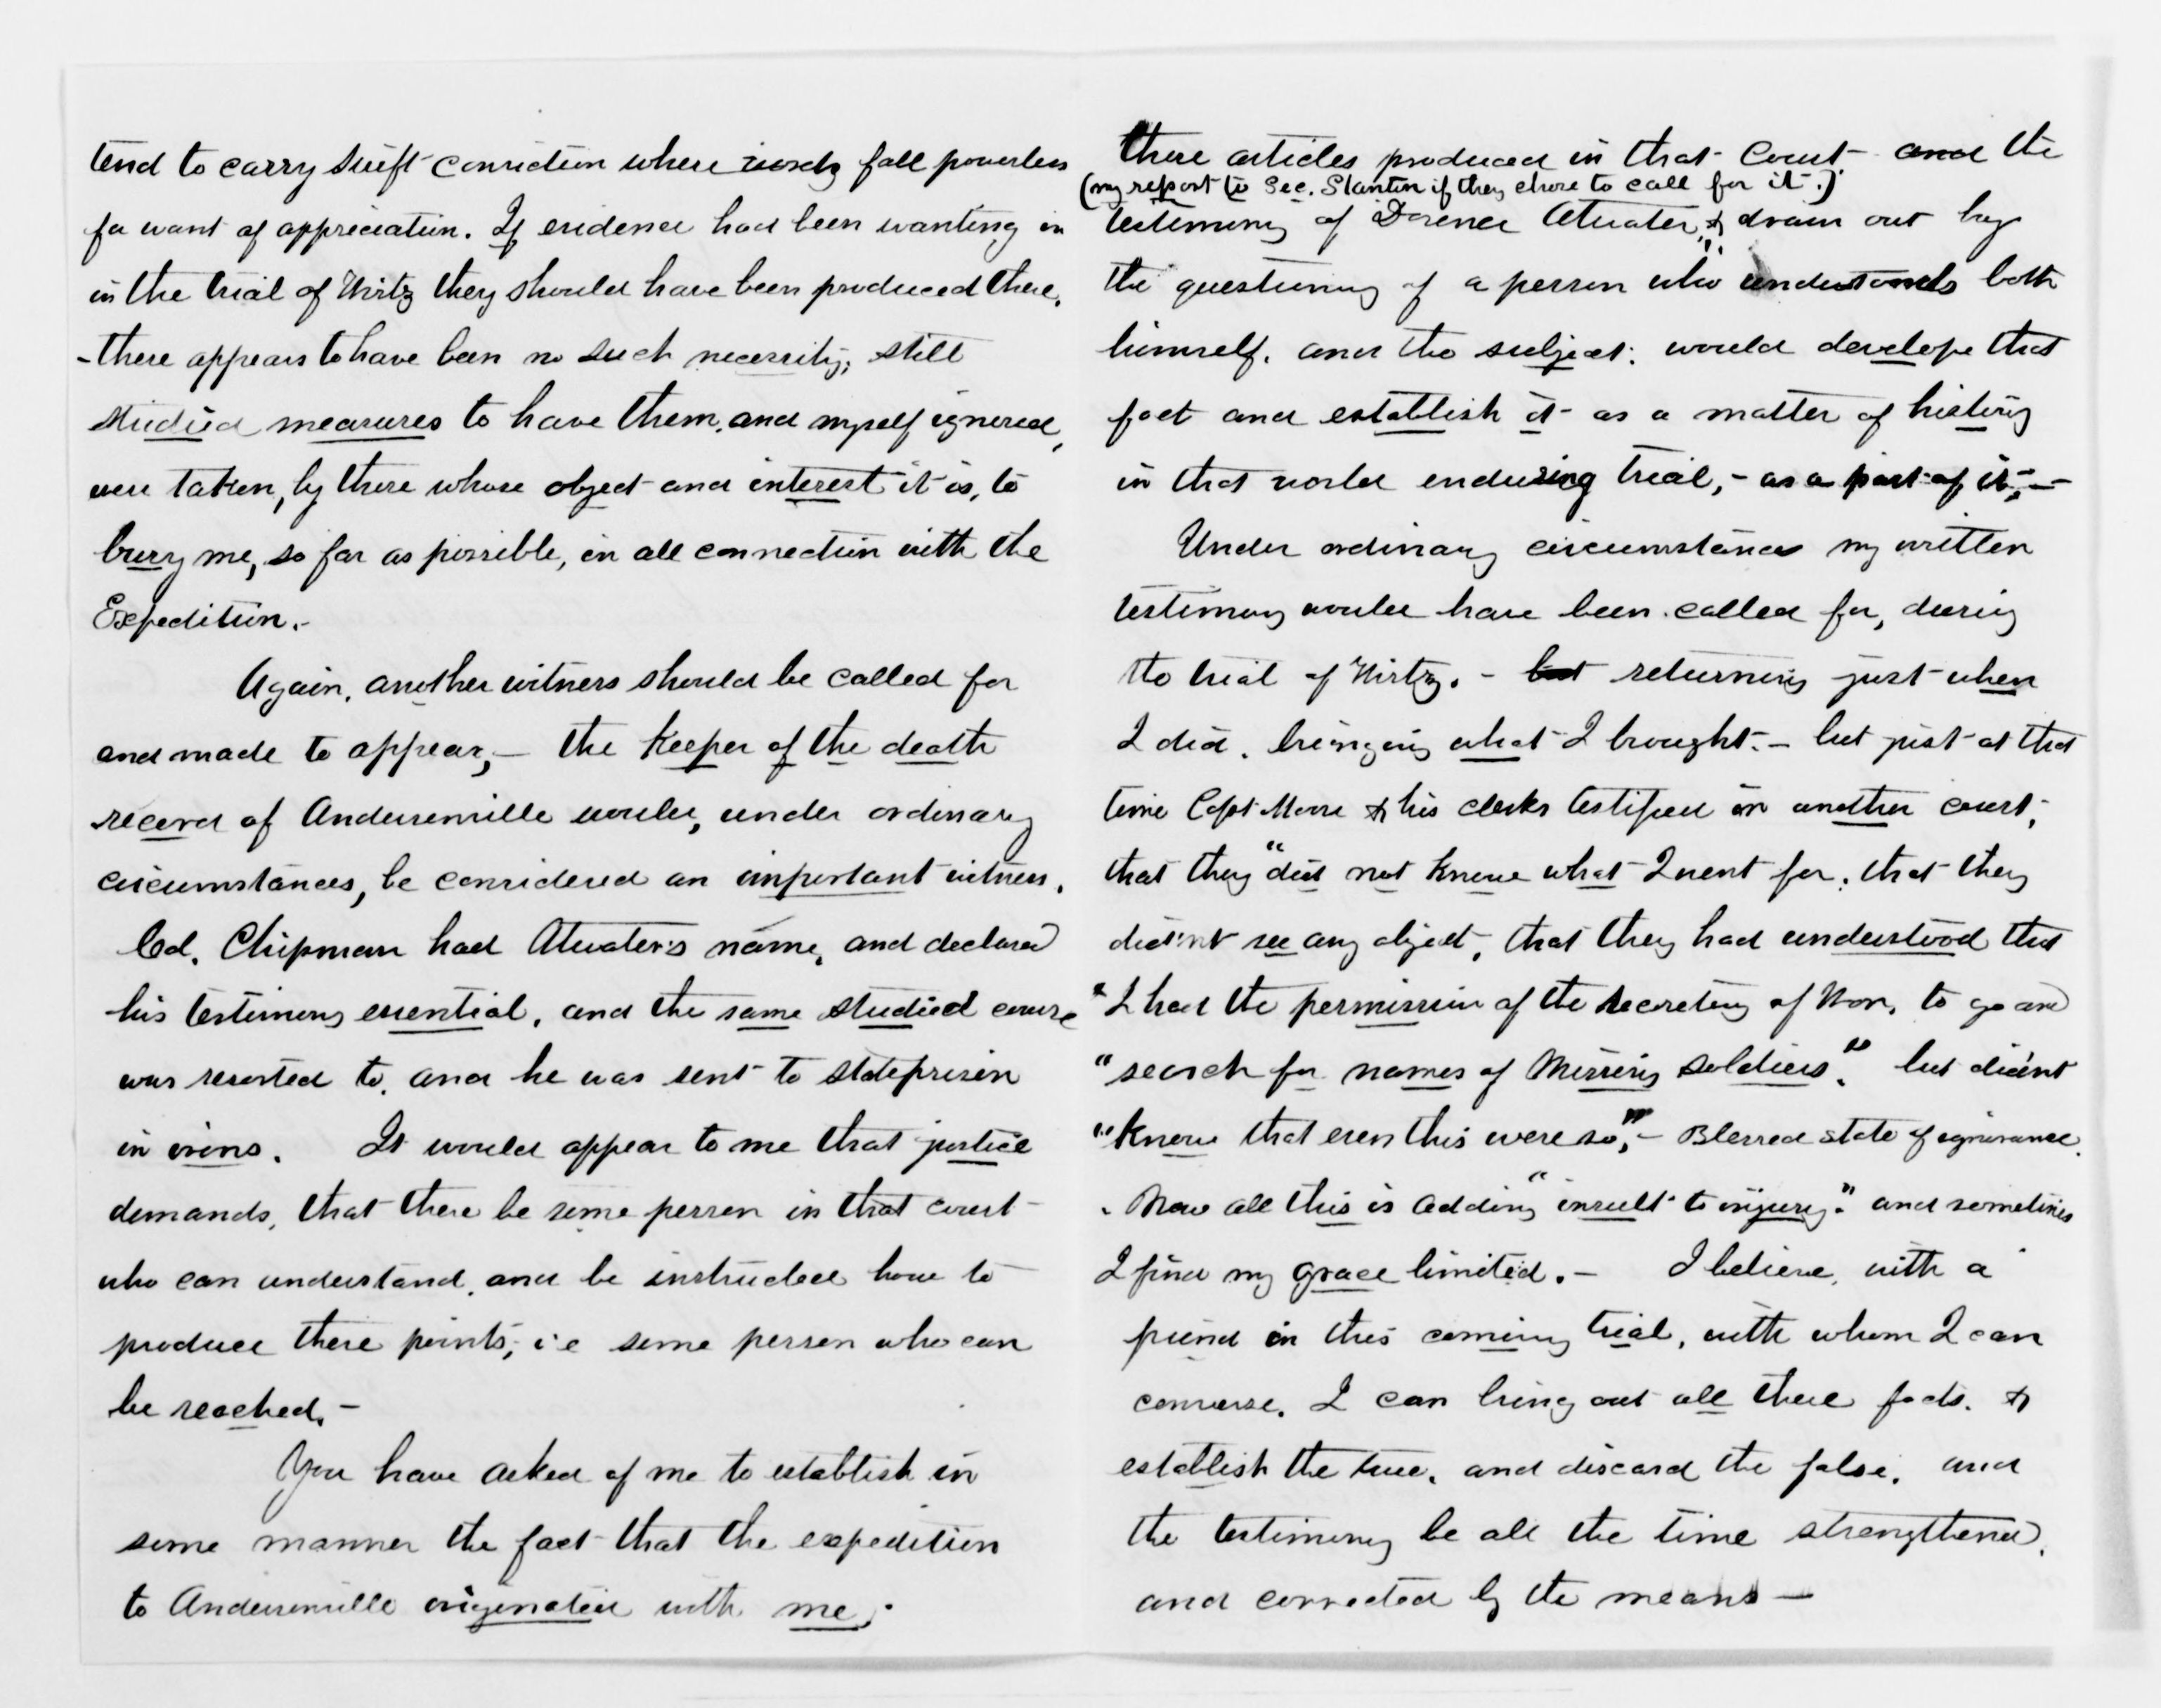 tend to carry swift conviction where words fall powerless
for want of appreciation. If evidence had been wanting in
in the trial of Wirtz they should have been produced there,
- there appears to have been no such necessity; still
studied measures to have them, and myself ignored,
were taken, by those whose object and interest it is, to
bury me, so far as possible, in all connection with the
Expedition.-
Again, another witness should be called for
and made to appear,- the Keeper of the death
record of Andersonville would, under ordinary
circumstances, be considered an important witness.
Col. Chipman had Atwater's name, and declared
his testimony essential, and the same studied course
was resorted to, and he was sent to stateprison
in irons. It would appear to me that justice
demands, that there be some person in that court
who can understand, and be instructed how to
produce these points; i e some person who can
be reached.-
You have asked of me to establish in
some manner the fact that the expedition
to Andersonville originated with me,.
These articles produced in that Court and the
(my report to Sec. Stanton if they chose to call for it.)
testimony of Dorence Atwater, & drawn out by
the questioning of a person who understands both
himself, and the subject: would develope that
fact and establish it as a matter of history
in that world enduring trial,- as a part of it,-
Under ordinary circumstances my written
testimony would have been called for, during
the trial of Wirtz. - but returning just when
I did, bringing what I brought.- but just at that
time Capt Moore & his clerks testified in another court,
that they "did not know what I went for, that they
didn't see any object, that they had understood that
"I had the permission of the Secretary of War, to go and
"search for names of Missing soldiers." but didn't
"Know that even this were so",- Blessed state of ignorance.
. Now all this is adding "insult to injury." and sometimes
I find my grace limited.- I believe, with a
friend in this coming trial, with whom I can
converse, I can bring out all these facts, &
establish the true, and discard the false, and
the testimony be all the time strengthened,
and corrected by the means-